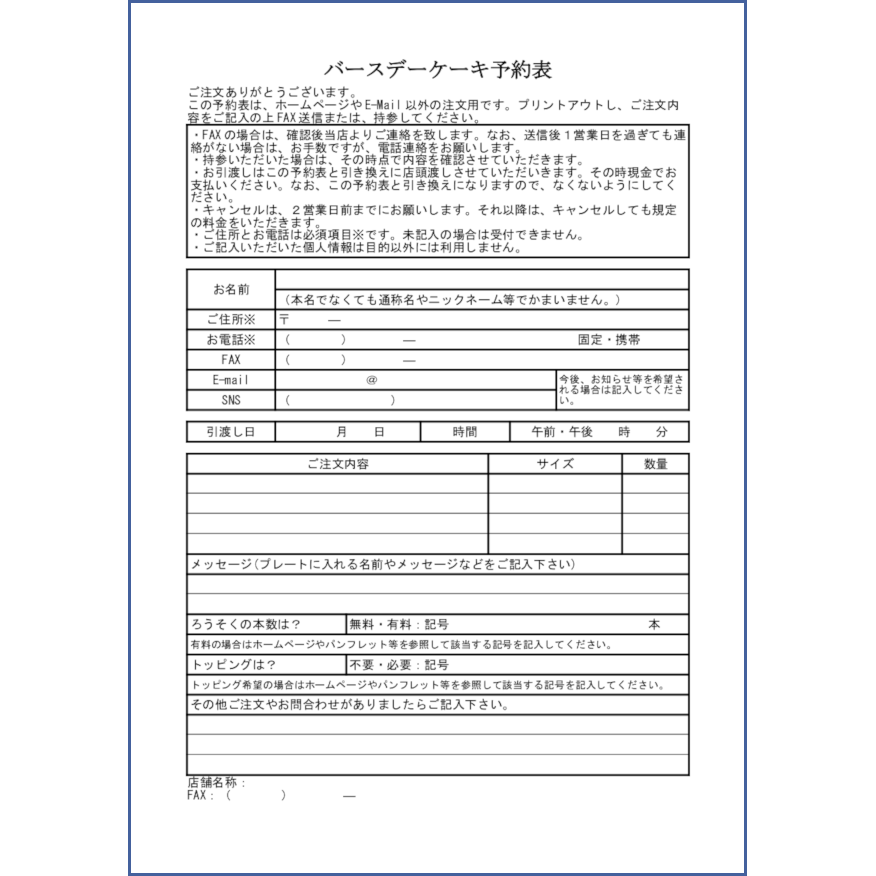 バースデーケーキ予約表
ご注文ありがとうございます。
この予約表は、ホームページやE-Mail以外の注文用です。プリントアウトし、ご注文内
容をご記入の上FAX送信または、持参してください。
・FAXの場合は、確認後当店よりご連絡を致します。なお、送信後１営業日を過ぎても連
絡がない場合は、お手数ですが、電話連絡をお願いします。
・持参いただいた場合は、その時点で内容を確認させていただきます。
・お引渡しはこの予約表と引き換えに店頭渡しさせていただいきます。その時現金でお
支払いください。なお、この予約表と引き換えになりますので、なくないようにしてく
ださい。
・キャンセルは、２営業日前までにお願いします。それ以降は、キャンセルしても規定
の料金をいただきます。
・ご住所とお電話は必須項目※です。未記入の場合は受付できません。
・ご記入いただいた個人情報は目的以外には利用しません。
お名前
（本名でなくても通称名やニックネーム等でかまいません。）
ご住所※ 〒 ―
お電話※ （ ） ― 固定・携帯
FAX （ ） ―
E-mail ＠
今後、お知らせ等を希望さ
れる場合は記入してくださ
い。
SNS （ ）
引渡し日 月 日 時間 午前・午後 時 分
ご注文内容 サイズ 数量
メッセージ(プレートに入れる名前やメッセージなどをご記入下さい)
ろうそくの本数は？ 無料・有料：記号 本
有料の場合はホームページやパンフレット等を参照して該当する記号を記入してください。
トッピングは？ 不要・必要：記号
トッピング希望の場合はホームページやパンフレット等を参照して該当する記号を記入してください。
その他ご注文やお問合わせがありましたらご記入下さい。
店舗名称：
FAX：（ ） ―